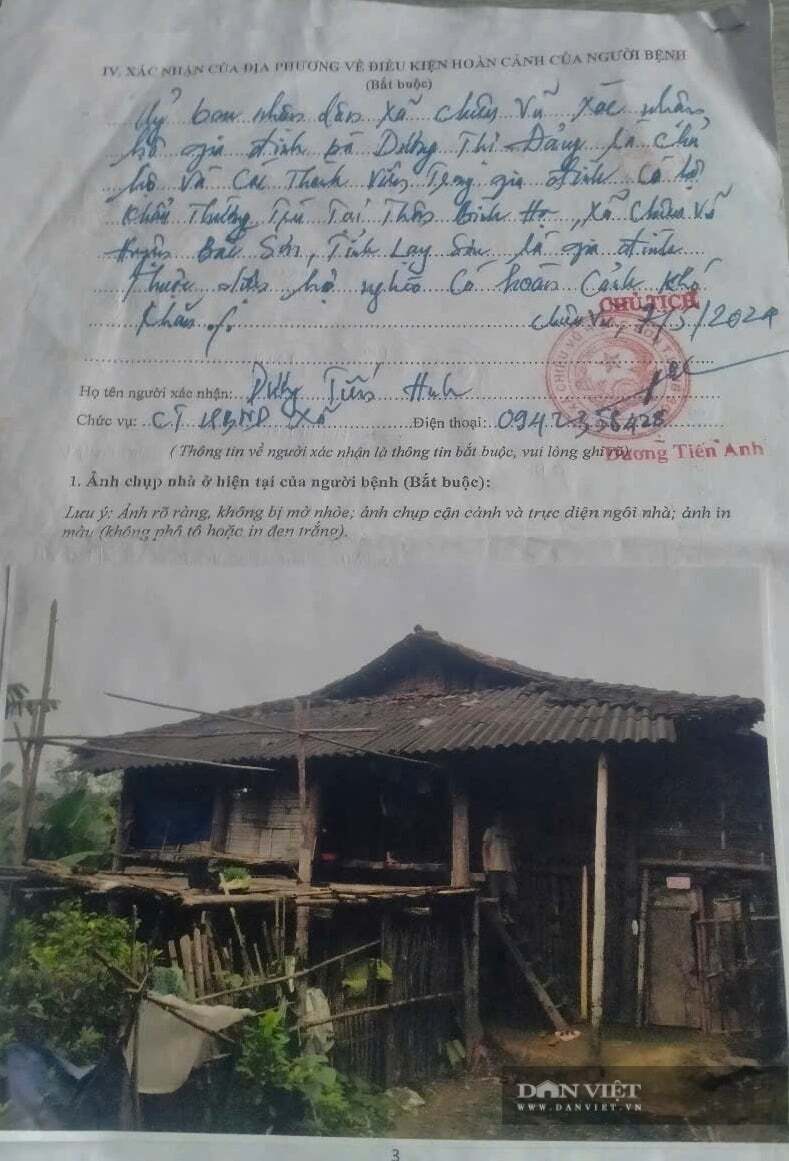 IV. XÁC NHẬN CỦA ĐỊA PHƯƠNG VỀ ĐIỀU KIỆN HOÀN CẢNH CỦA NGƯỜI BỆNH
(Bắt buộc)
Uỷ ban nhân dân xã Chiêu Vũ xác nhận
hộ gia đình bà Dương Thị Đảng là chủ
hộ và các thành viên trong gia đình có hộ
khẩu thường trú tại thôn Bình Hạ, xã Chiêu Vũ
huyện Bắc Sơn, tỉnh Lạng Sơn là gia đình
thuộc diện hộ nghèo có hoàn cảnh khó
khăn./.
CHỦ TỊCH
Chiêu Vũ, 7/5/2024
Họ tên người xác nhận: Dương Tiến Anh
Chức vụ: CT UBND xã Điện thoại: 0942358428
(Thông tin về người xác nhận là thông tin bắt buộc, vui lòng ghi rõ)
Dương Tiến Anh
1. Ảnh chụp nhà ở hiện tại của người bệnh (Bắt buộc):
Lưu ý: Ảnh rõ ràng, không bị mờ nhòe; ảnh chụp cận cảnh và trực diện ngôi nhà; ảnh in
màu (không phô tô hoặc in đen trắng).
DÂN VIỆT
WWW.DANVIET.VN
3